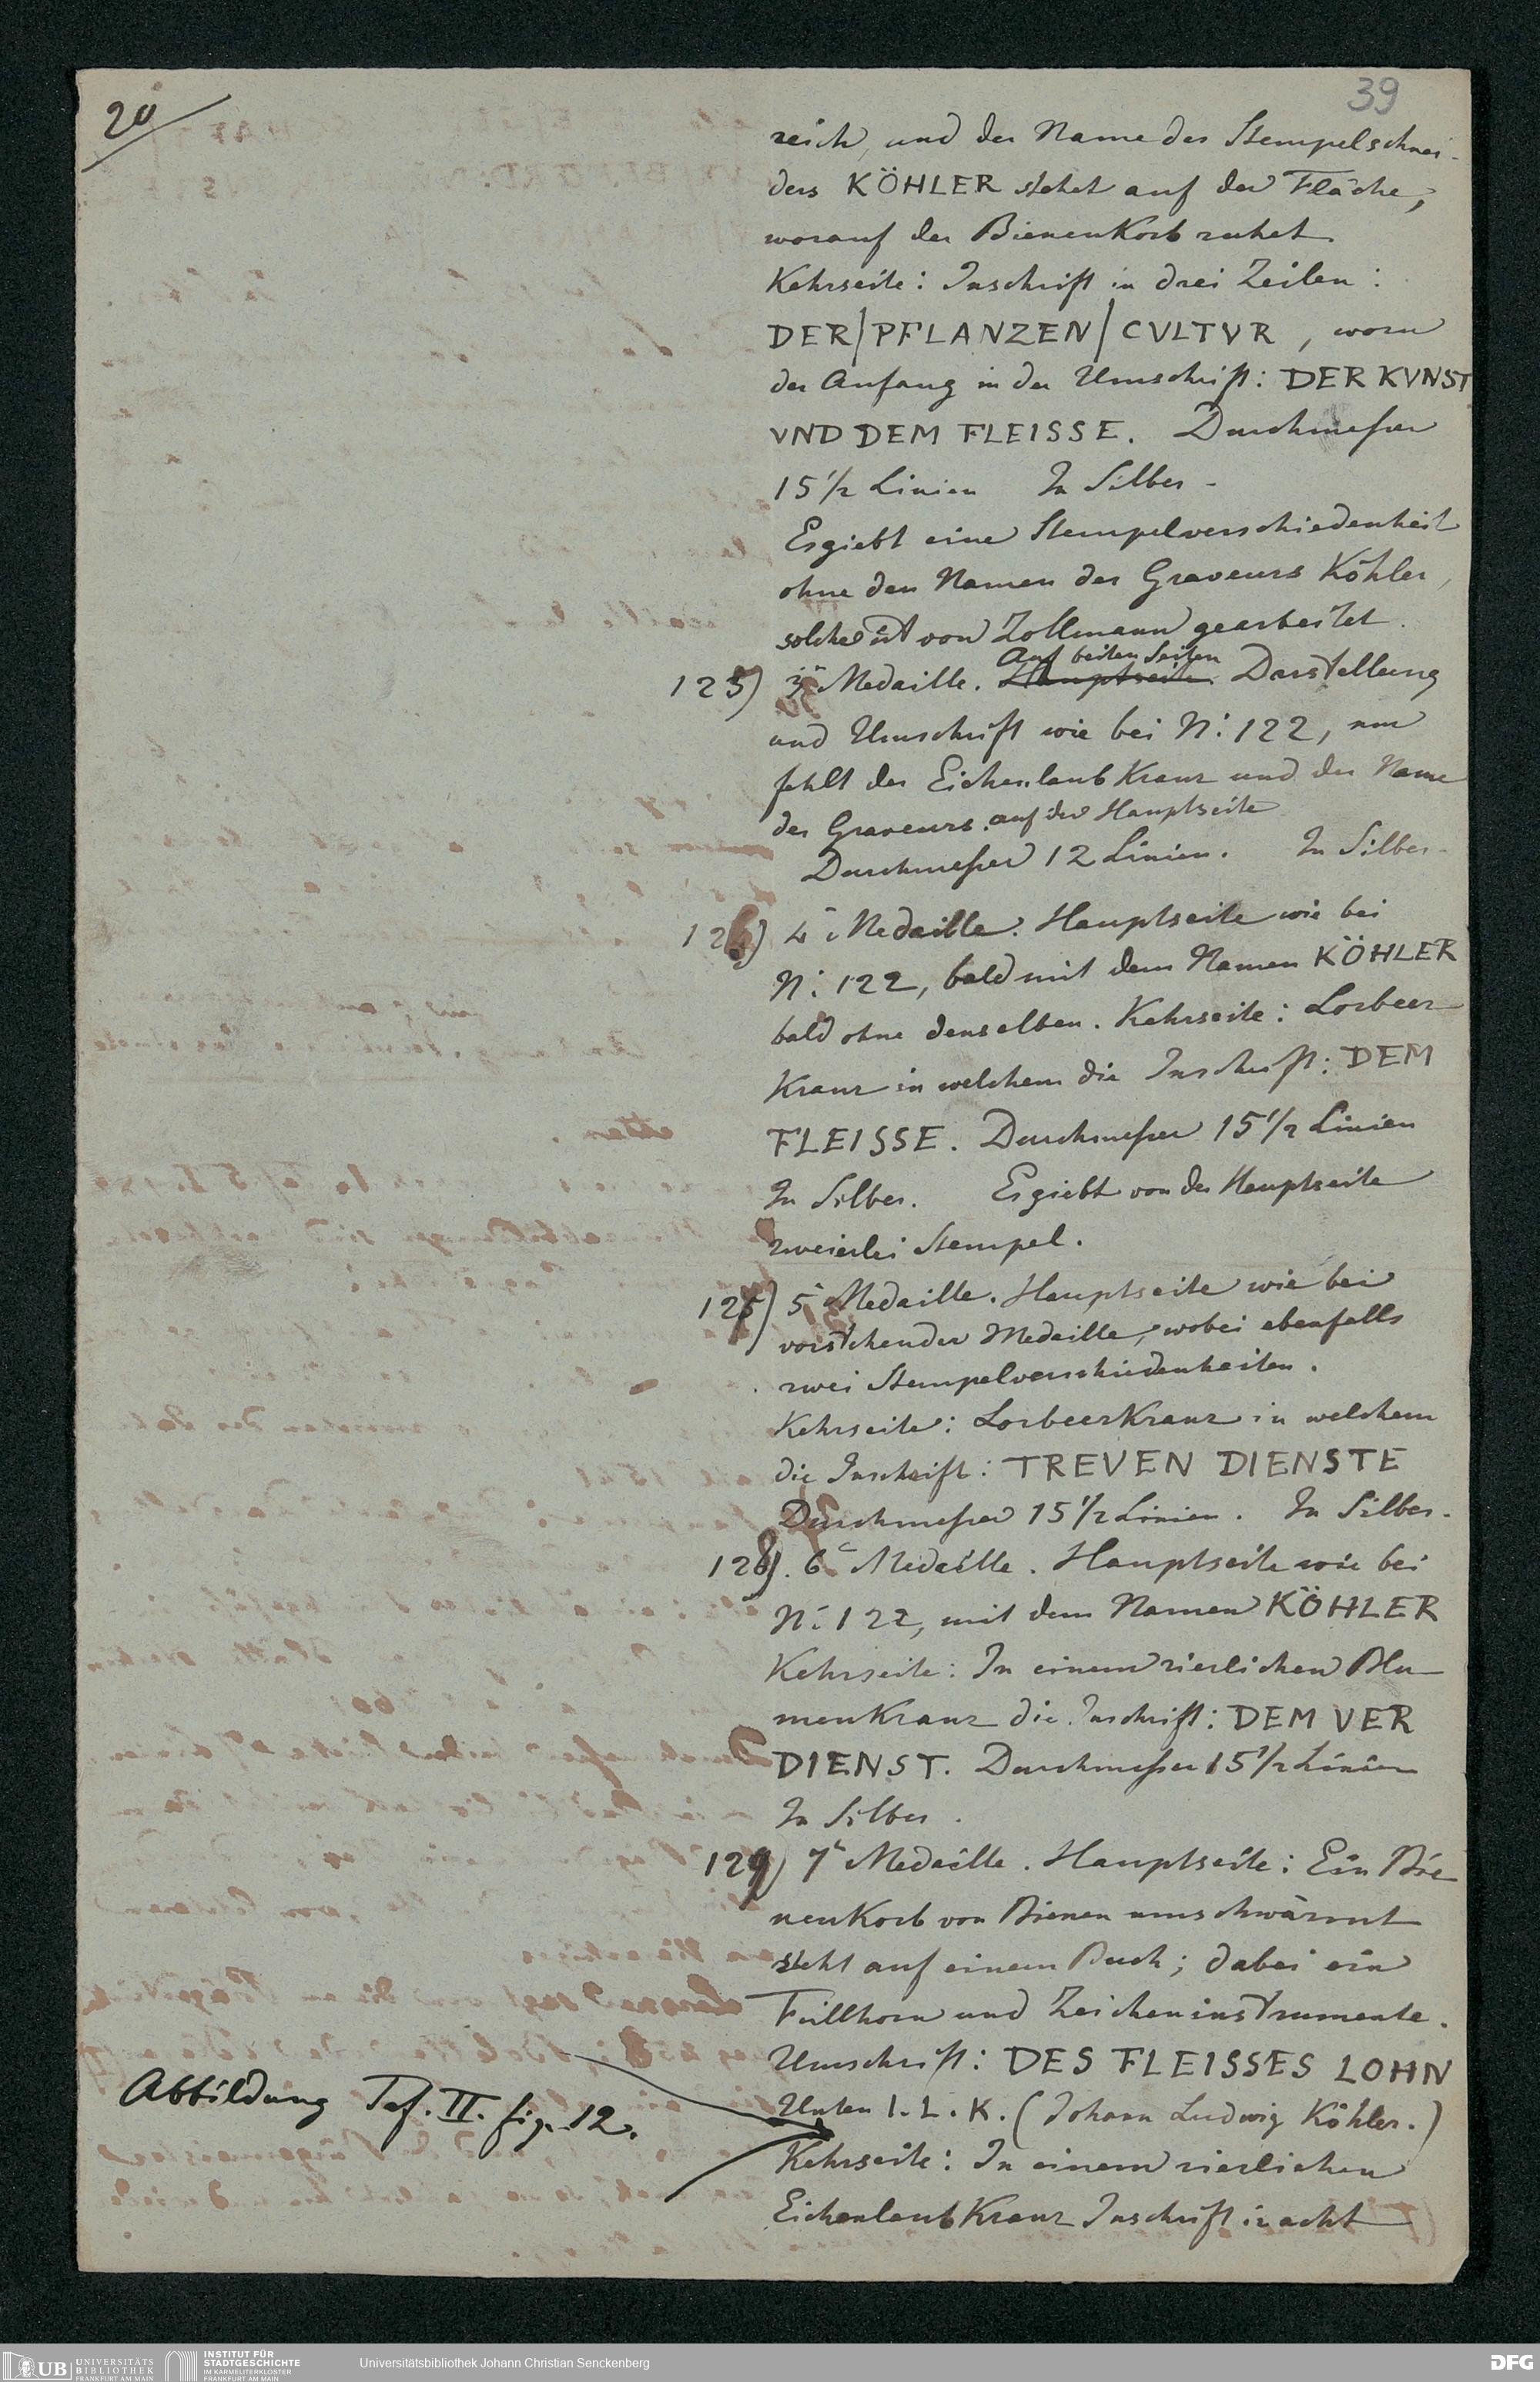 20
39
reich, und der Name des Stempelschnei-
ders KÖHLER stehet auf der Fläche,
worauf der Bienenkorb ruhet.
Kehrseite: Inschrift in drei Zeilen:
DER/PFLANZEN/CVLTVR, wozu
der Anfang in der Umschrift: DER KVNST
VND DEM FLEISSE. Durchmesser
15 1/2 Linien In Silber -
Es giebt eine Stempelverschiedenheit
ohne den Namen des Graveurs Köhler,
solche ist von Zollmann gearbeitet.
Auf beiden Seiten
125) 3e Medaille. Hauptseite. Darstellung
und Umschrift wie bei N: 122, nur
fehlt der Eichenlaub Kranz und der Name
des Graveurs. auf der Hauptseite
Durchmesser 12 Linien. In Silber-
126) 4e Medaille. Hauptseite wie bei
N: 122, bald mit dem Namen KÖHLER
bald ohne denselben. Kehrseite: Lorbeer-
Kranz in welchem die Inschrift: DEM
FLEISSE. Durchmesser 15 1/2 Linien
In Silber. Es giebt von der Hauptseite
zweierlei Stempel.
127) 5e Medaille. Hauptseite wie bei
vorstehender Medaille, wobei ebenfalls
zwei Stempelverschiedenheiten.
Kehrseite: Lorbeerkranz in welchem
die Inschrift: TREVEN DIENSTE
Durchmesser 15 1/2 Linien. In Silber.
128). 6e Medaille. Hauptseite wie bei
N: 122, mit dem Namen KÖHLER
Kehrseite: In einem zierlichen Blu-
menkranz die Inschrift: DEM VER
DIENST. Durchmesser 15 1/2 Linien
In Silber.
129) 7e Medaille. Hauptseite: Ein Bie-
nenkorb von Bienen umschwärmt
steht auf einem Buch; dabei ein
Füllhorn und Zeicheninstrumente.
Umschrift: DES FLEISSES LOHN
Unten I. L. K. (Johann Ludwig Köhler.)
Abbildung Taf. II. fig. 12.
Kehrseite: In einem zierlichen
Eichenlaub Kranz Inschrift in acht
UB UNIVERSITÄTS
BIBLIOTHEK
FRANKFURT AM MAIN
INSTITUT FÜR
STADTGESCHICHTE
IM KARMELITERKLOSTER
FRANKFURT AM MAIN
Universitätsbibliothek Johann Christian Senckenberg
DFG